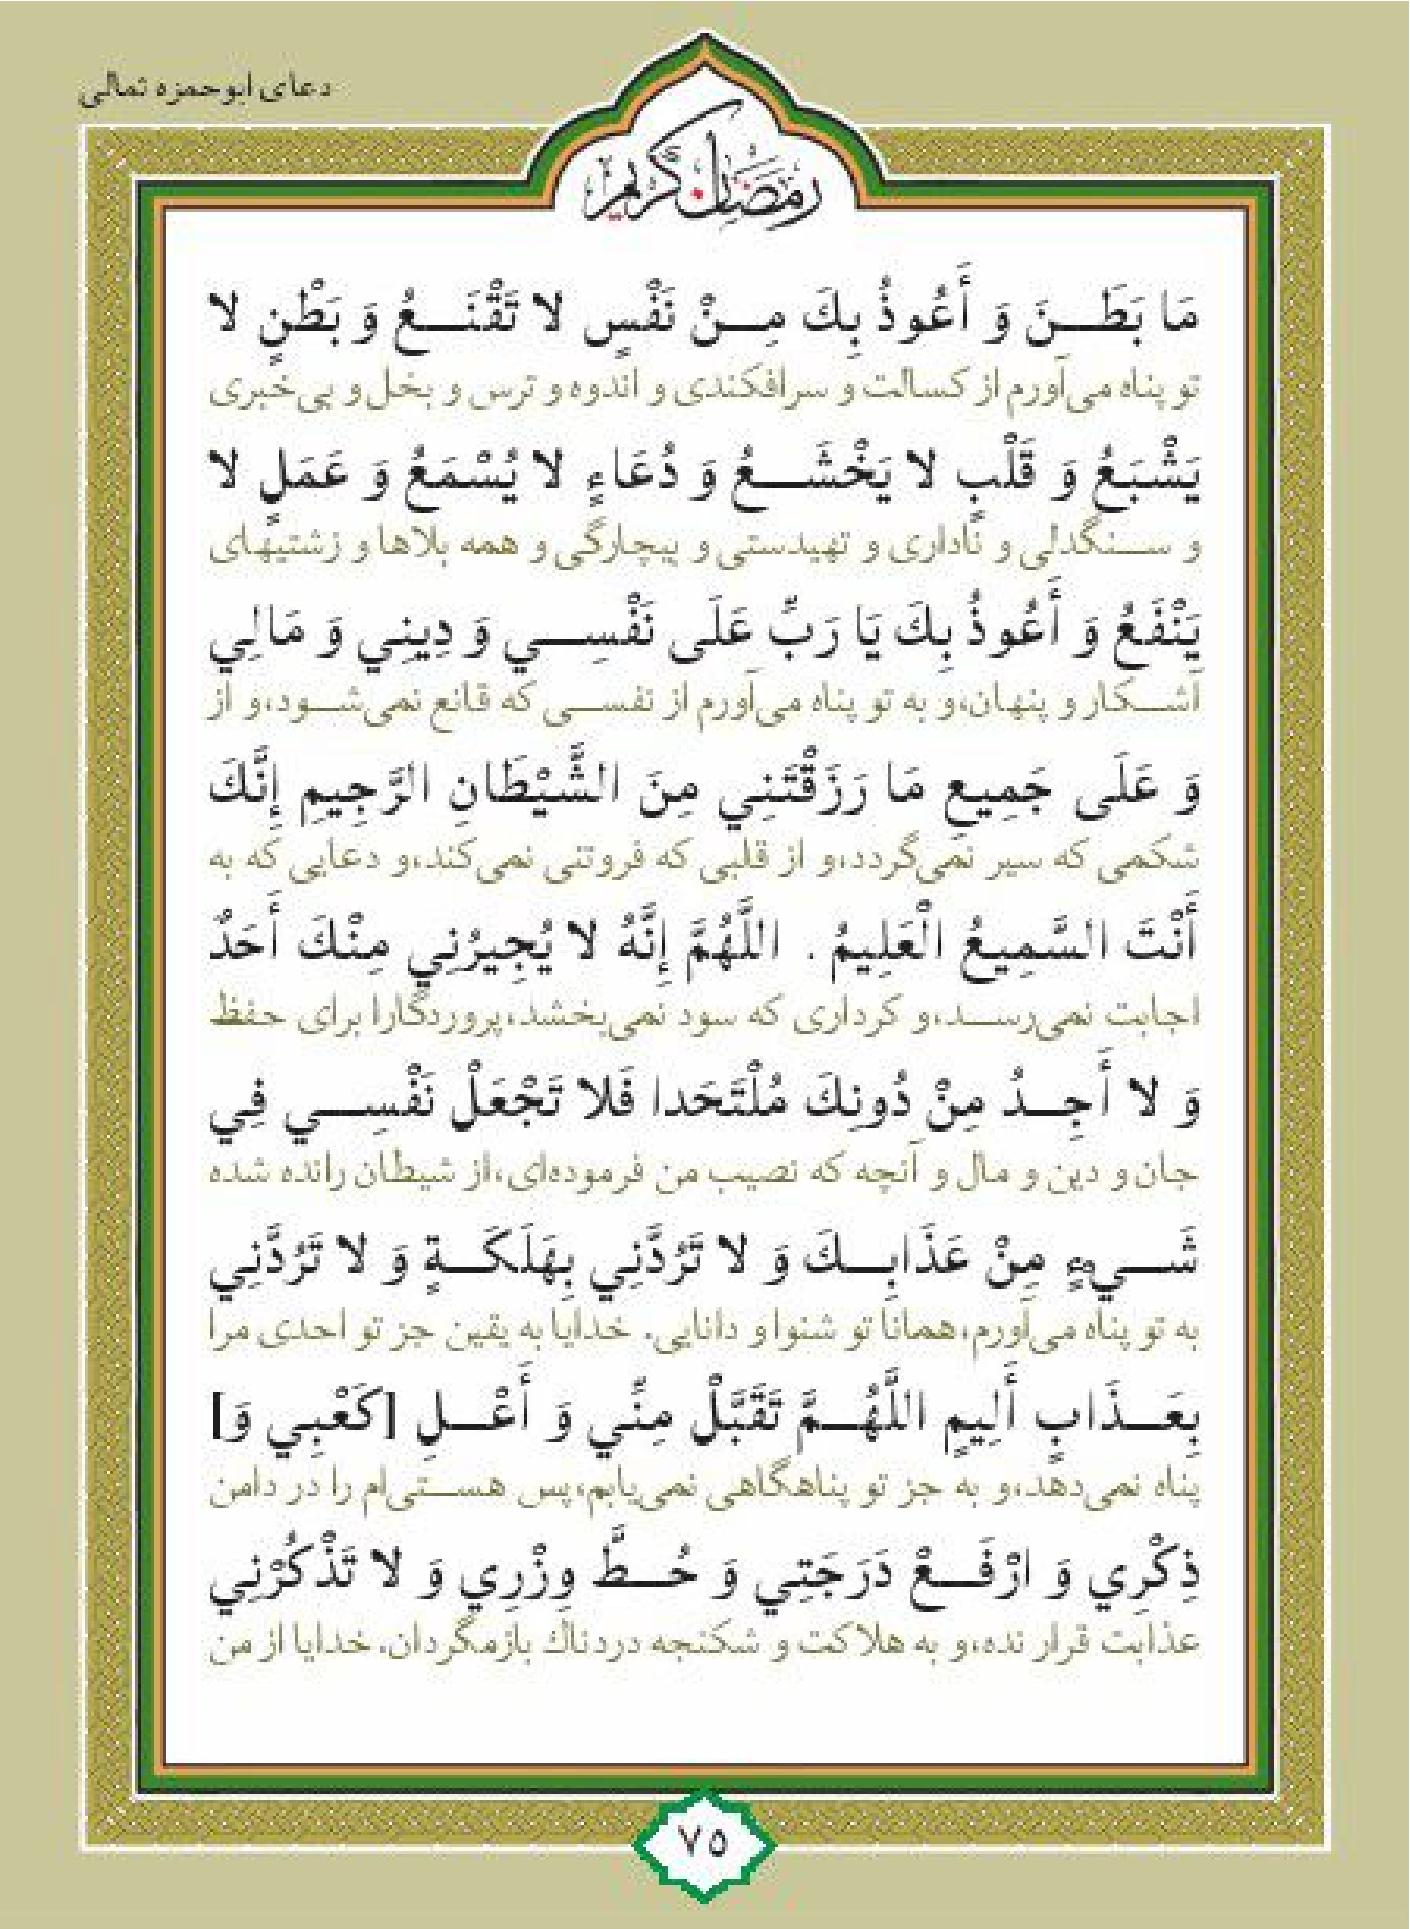 دعای ابوحمزه ثمالی
رمضان كريم
مَا بَطَنَ وَ أَعُوذُ بِكَ مِنْ نَفْسٍ لا تَقْنَعُ وَ بَطْنٍ لا
تو پناه می‌آورم از کسالت و سرافکندی و اندوه و ترس و بخل و بی‌خبری
يَشْبَعُ وَ قَلْبٍ لا يَخْشَعُ وَ دُعَاءٍ لا يُسْمَعُ وَ عَمَلٍ لا
و سنگدلی و ناداری و تهیدستی و بیچارگی و همه بلاها و زشتیهای
يَنْفَعُ وَ أَعُوذُ بِكَ يَا رَبِّ عَلَى نَفْسِي وَ دِينِي وَ مَالِي
آشکار و پنهان،و به تو پناه می‌آورم از نفسی که قانع نمی‌شود،و از
وَ عَلَى جَمِيعِ مَا رَزَقْتَنِي مِنَ الشَّيْطَانِ الرَّجِيمِ إِنَّكَ
شکمی که سیر نمی‌گردد،و از قلبی که فروتنی نمی‌کند،و دعایی که به
أَنْتَ السَّمِيعُ الْعَلِيمُ . اللَّهُمَّ إِنَّهُ لا يُجِيرُنِي مِنْكَ أَحَدٌ
اجابت نمی‌رسد،و کرداری که سود نمی‌بخشد،پروردگارا برای حفظ
وَ لا أَجِدُ مِنْ دُونِكَ مُلْتَحَدا فَلا تَجْعَلْ نَفْسِي فِي
جان و دین و مال و آنچه که نصیب من فرموده‌ای،از شیطان رانده شده
شَيءٍ مِنْ عَذَابِكَ وَ لا تَرُدَّنِي بِهَلَكَةٍ وَ لا تَرُدَّنِي
به تو پناه می‌آورم،همانا تو شنوا و دانایی. خدایا به یقین جز تو احدی مرا
بِعَذَابٍ أَلِيمٍ اللَّهُمَّ تَقَبَّلْ مِنِّي وَ أَعْلِ [كَعْبِي وَ]
پناه نمی‌دهد،و به جز تو پناهگاهی نمی‌یابم،پس هستی‌ام را در دامن
ذِكْرِي وَ ارْفَعْ دَرَجَتِي وَ حُطَّ وِزْرِي وَ لا تَذْكُرْنِي
عذابت قرار نده،و به هلاکت و شکنجه دردناک بازمگردان. خدایا از من
٧٥